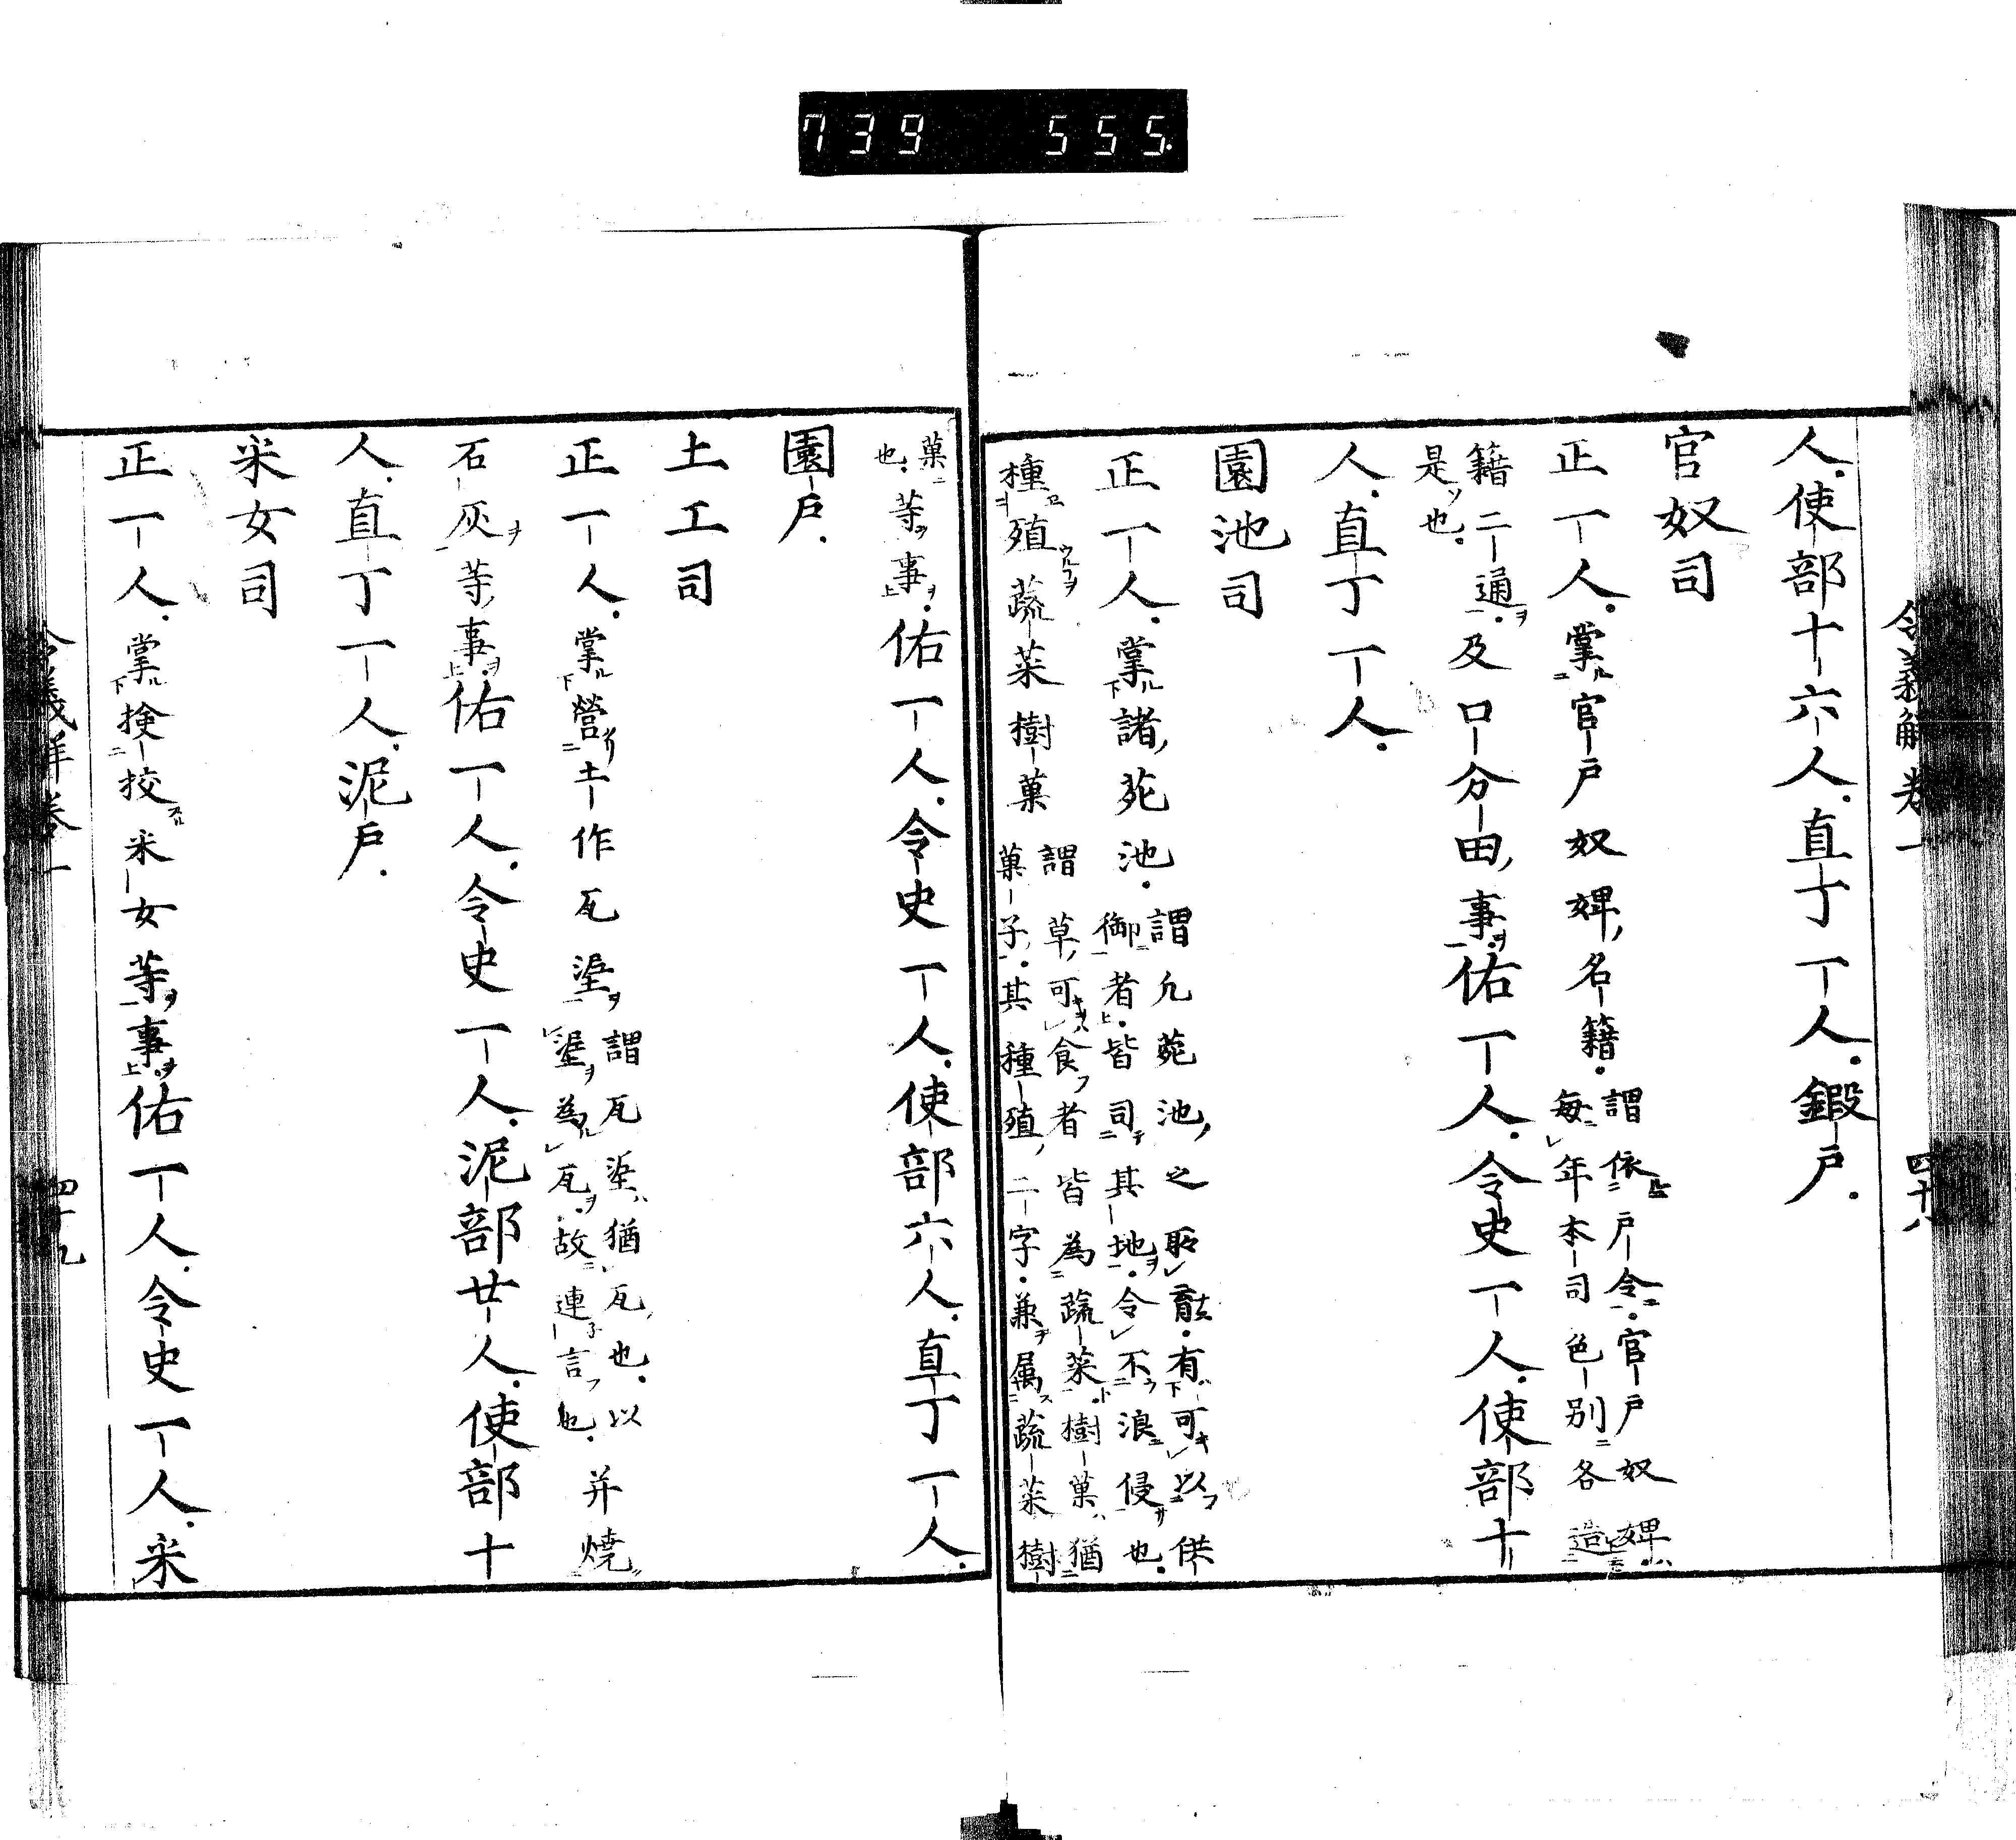 739 555
令義解卷一 四十八
人使部十六人直丁一人鍛戸
官奴司
正一人掌官戸奴婢名籍謂依戸令官戸奴婢
每年本司色別各造
籍二通
是也及口分田事佑一人令史一人使部十
人直丁一人
園池司
正一人掌諸苑池謂凡菀池之所有可以供
御者皆司其地令不浪侵也
種殖蔬菜樹菓謂草可食者皆為蔬菜樹菓猶
菓子其種殖二字兼属蔬菜樹
菓
也等事佑一人令史一人使部六人直丁一人
園戸
土工司
正一人掌營土作瓦埿謂瓦埿猶瓦也以
埿為瓦故連言也并燒
石灰等事佑一人令史一人泥部廿人使部十
人直丁一人泥戸
采女司
正一人掌検挍采女等事佑一人令史一人采
令義解卷一 四十九